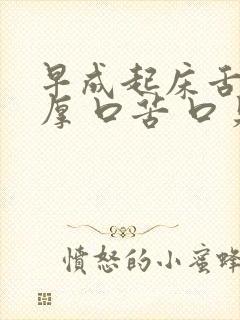 早成起床舌
厚口苦口
愤怒的小蜜蜂